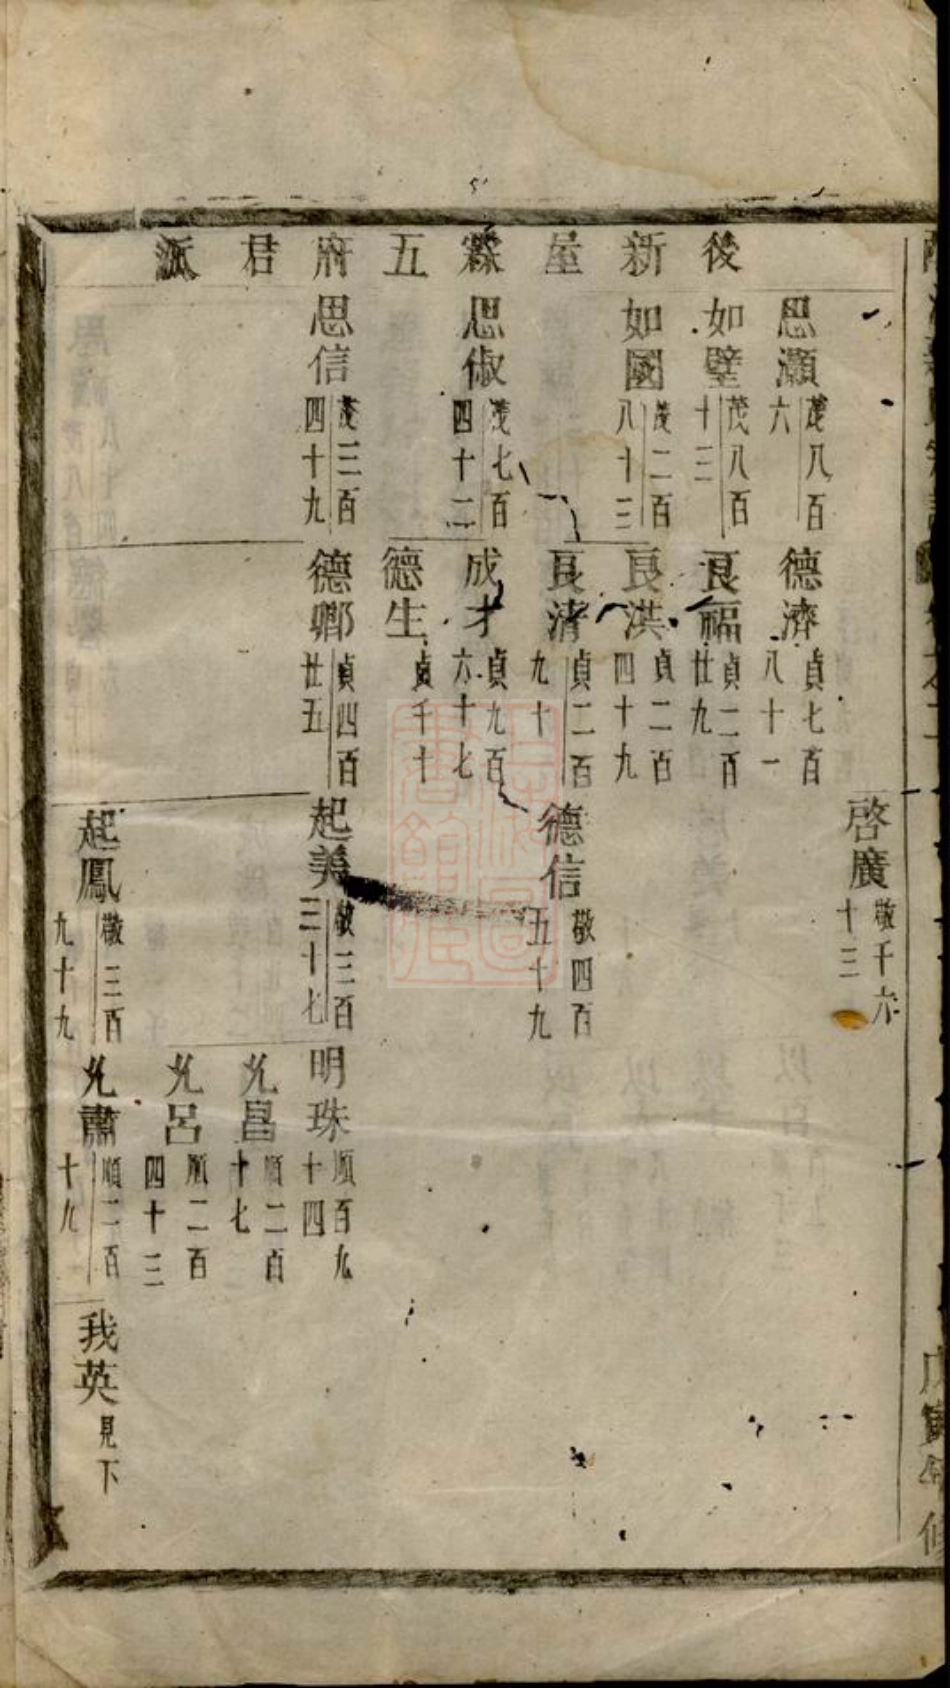 後新屋霖五府君派
思灝 茂八百六
如璧 茂八百十三
如國 茂二百八十三
思俶 茂七百四十二
思信 茂三百四十九
德濟 貞七百八十一
良福 貞二百廿九
良洪 貞二百四十九
良清 貞二百九十
成才 貞九百六十七
德生 貞千十
德卿 貞四百廿五
啓廣 敬千六十三
德信 敬四百五十九
起美 敬三百三十七
起鳳 敬三百九十九
明珠 順百九十四
允昌 順二百十七
允呂 順二百四十三
允肅 順二百十九
我英 見下